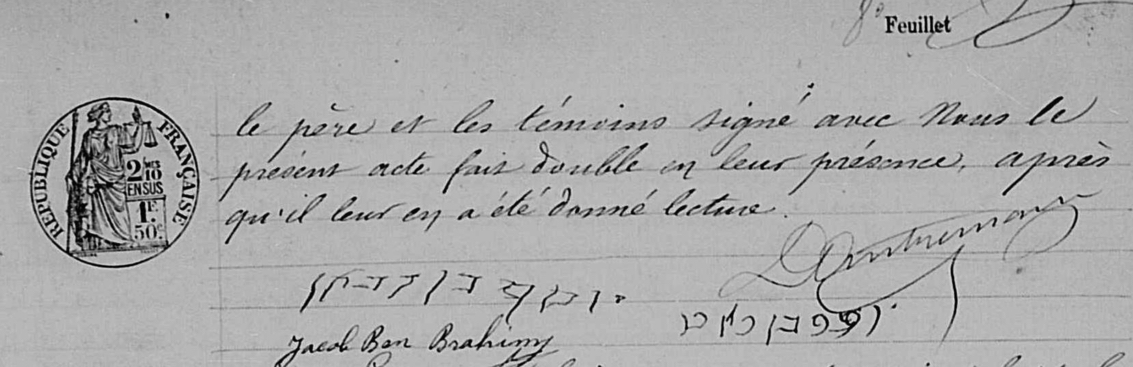 Feuillet
RÉPUBLIQUE FRANÇAISE
2/10 EN SUS
1F. 50c
le père et les témoins signé avec Nous le
présent acte fait double en leur présence, après
qu'il leur en a été donné lecture.
Jacob Ben Brahimy